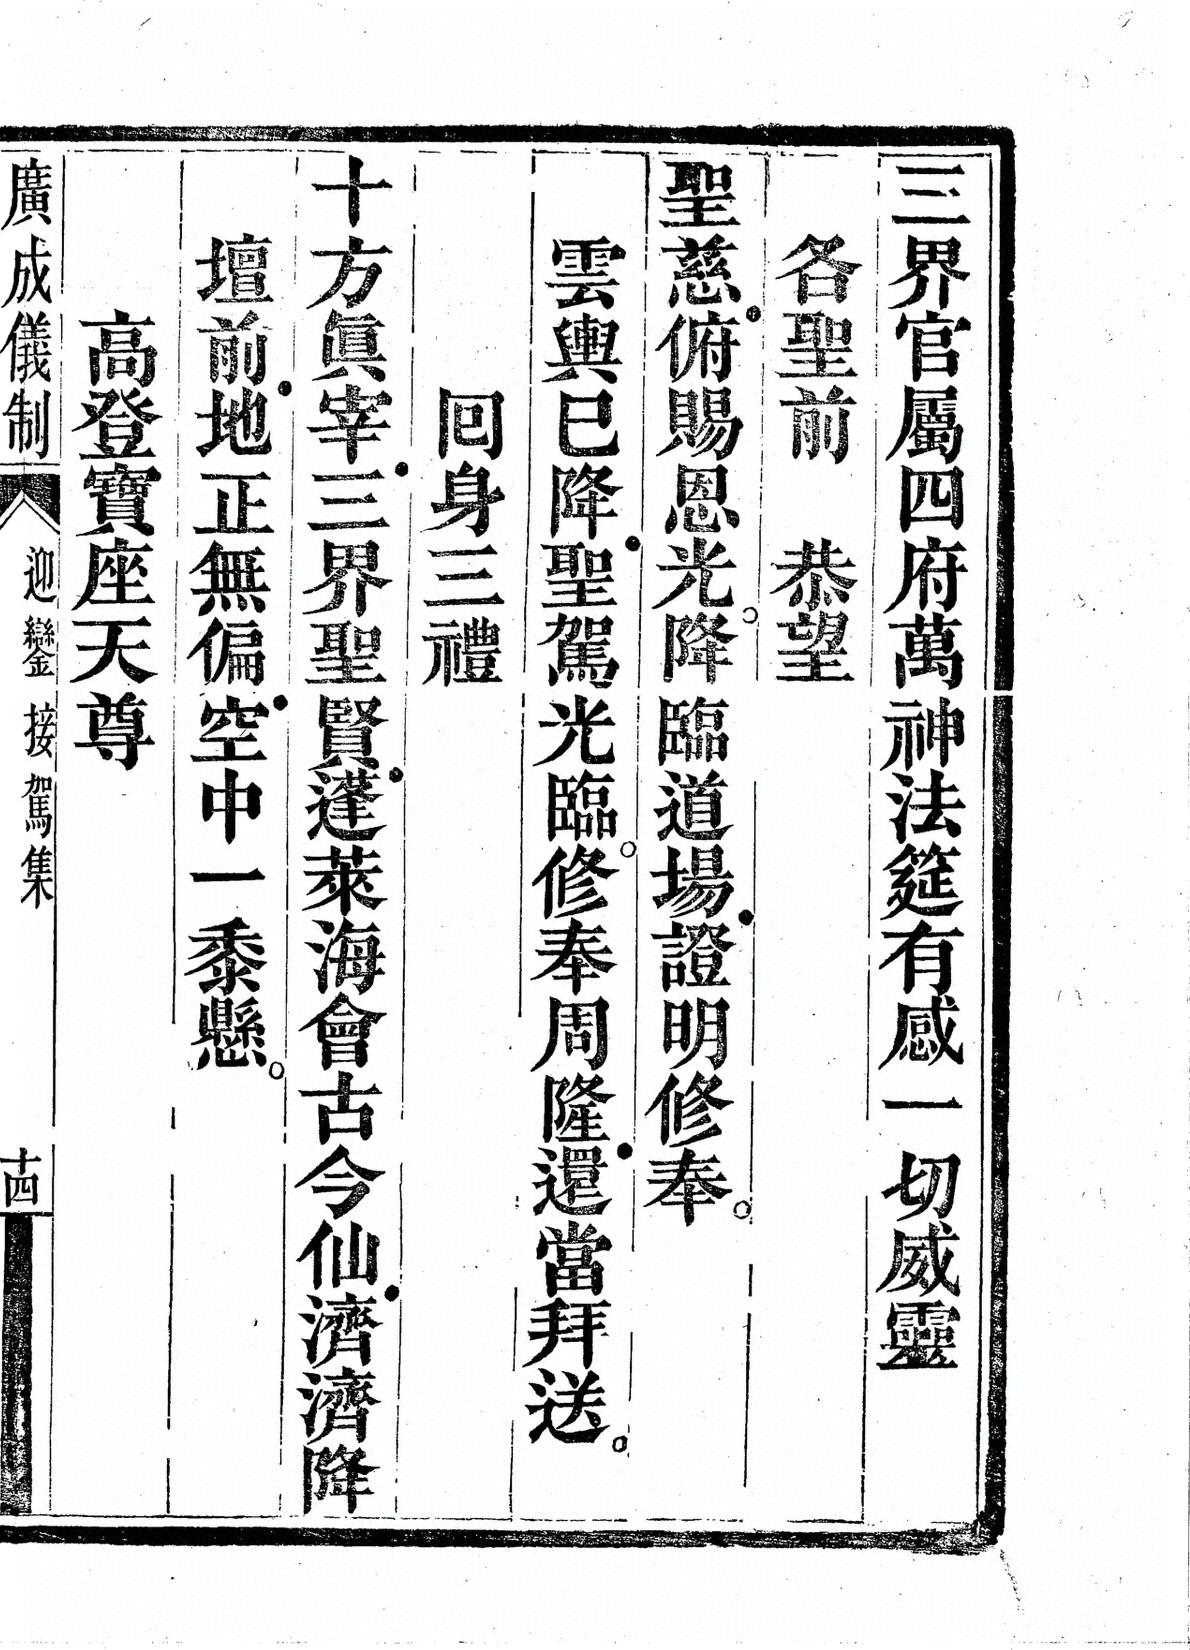 三界官屬四府萬神法筵有感一切威靈
各聖前　恭望
聖慈●俯賜恩光○降臨道場●證明修奉○
雲輿已降●聖駕光臨○修奉周隆●還當拜送○
回身三禮
十方眞宰●三界聖賢●蓬萊海會古今仙●濟濟降
壇前●地正無偏●空中一黍懸○
高登寶座天尊
廣成儀制　迎鑾接駕集　十四